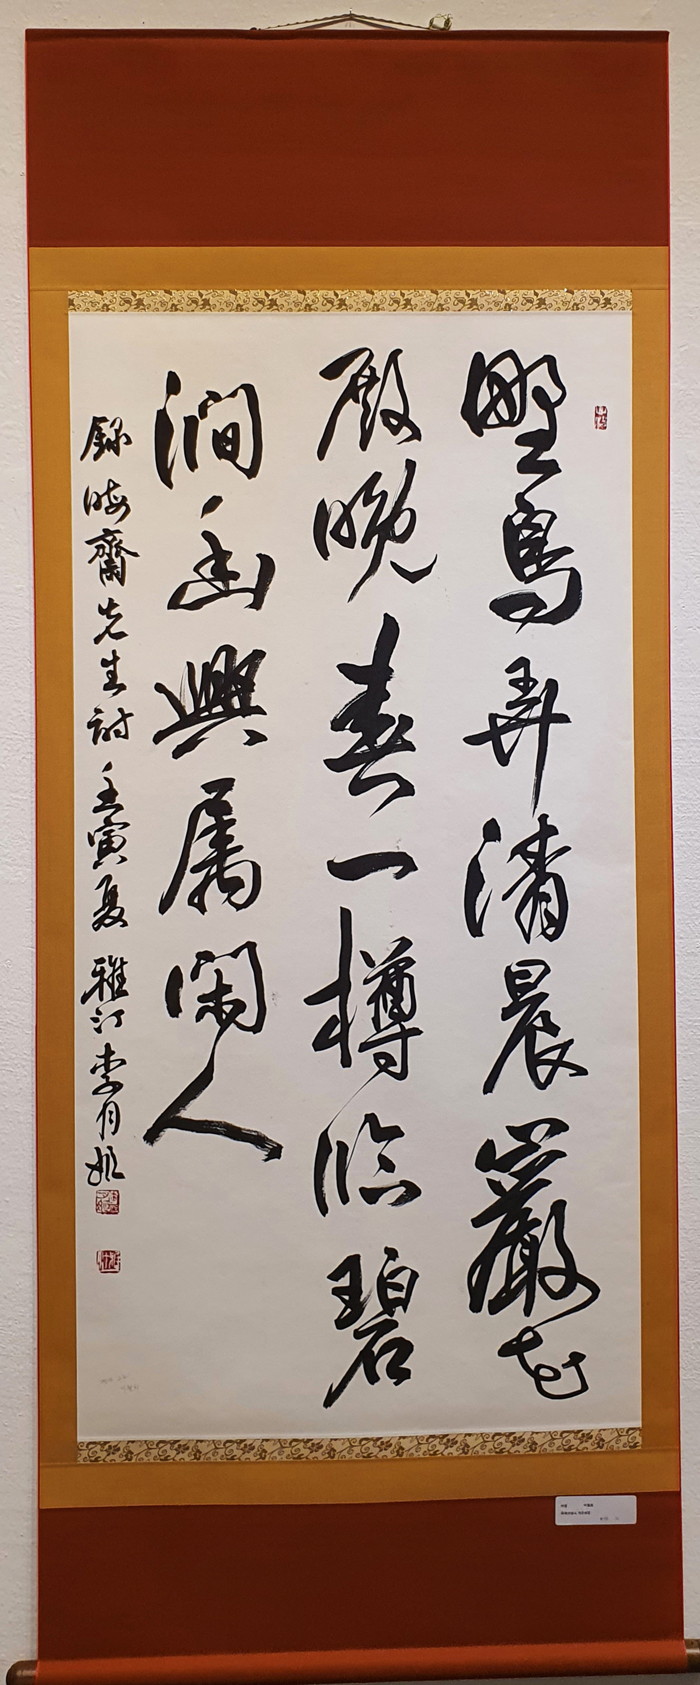 野鳥弄清晨巖花
殿晩春一樽臨碧
澗幽興屬閑人
錄晦齋先生詩 壬寅夏 雅汀 李月姬